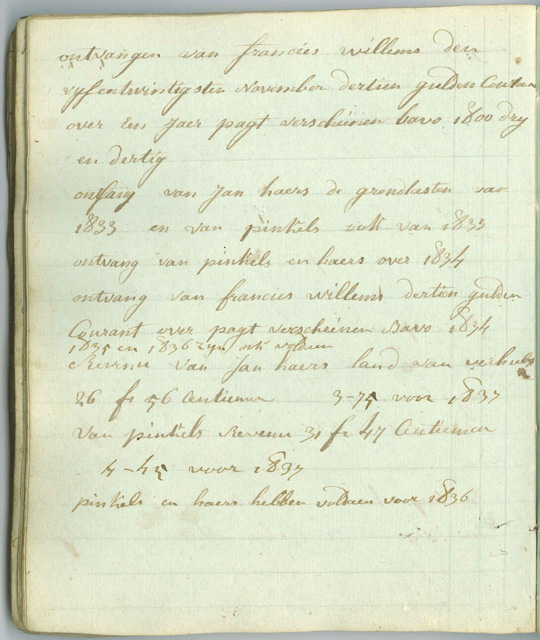 ontvangen van francies willems den
vyf en twintigsten November dertien gulden Courant
over Een Jaer pagt verscheinen bavo 1800 dry
en dertig
ontfang van Jan haers de grondlasten van
1833 en van pinkels ook van 1833
ontvang van pinkels en haers over 1834
ontvang van francies willems dertien gulden
Courant over pagt verscheinen Bavo 1834
1835 en 1836 zyn ook voldien
Revenu van Jan haers land van
26 fr 56 Centiemen 3-75 voor 1837
Van pinkels Revenu 31 fr 47 Centiemen
4-45 voor 1837
pinkels en haers hebben voldaen voor 1836